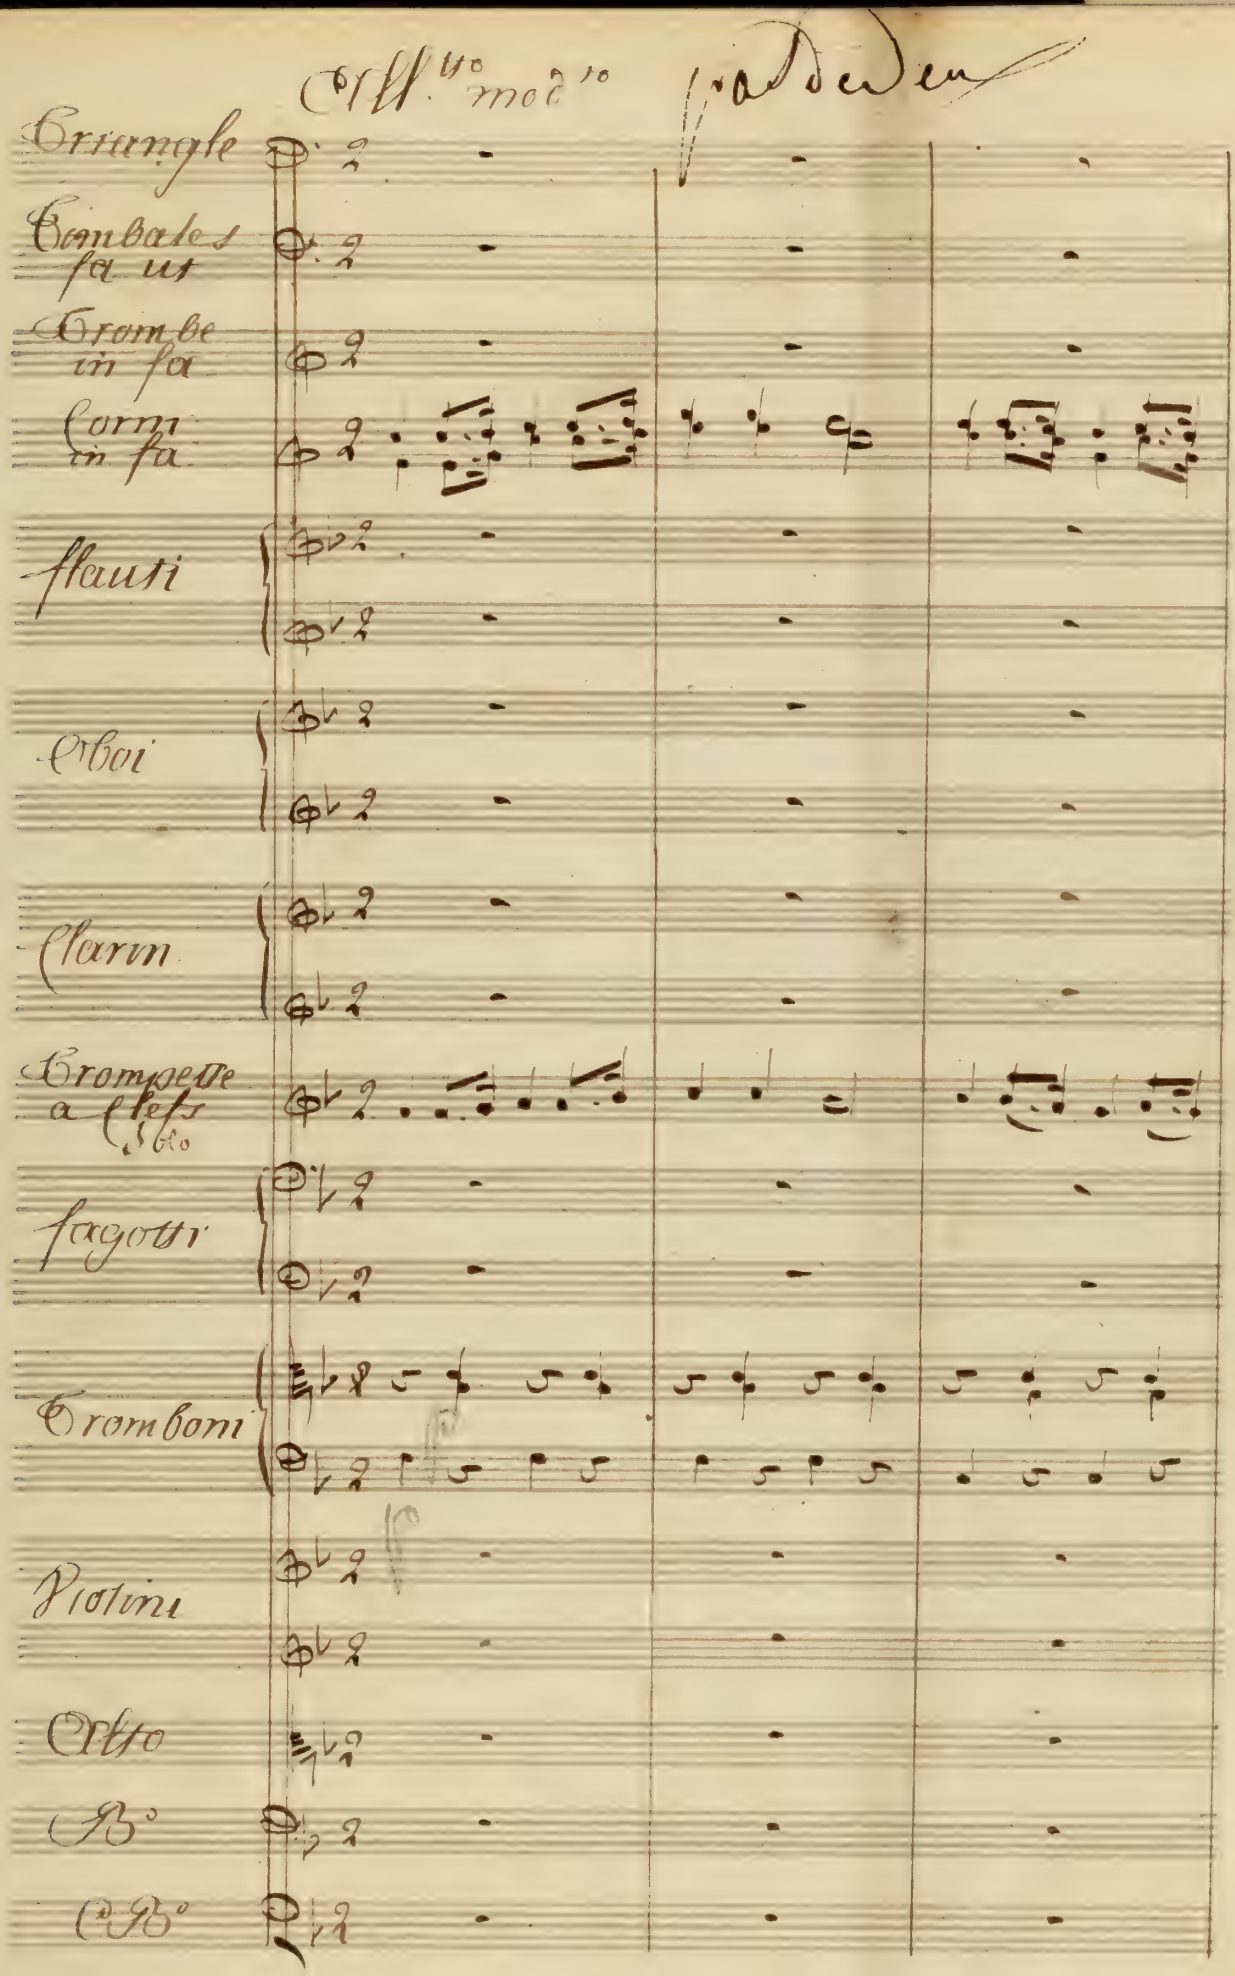 All.tto mod.to pas de Deux
Triangle
Timbales
fa ut
Trombe
in fa
Corni
in fa
flauti
Oboi
Clarin
Trompette
a Clefs
Solo
fagotti
Tromboni
Violini
Alto
B°
C. B°